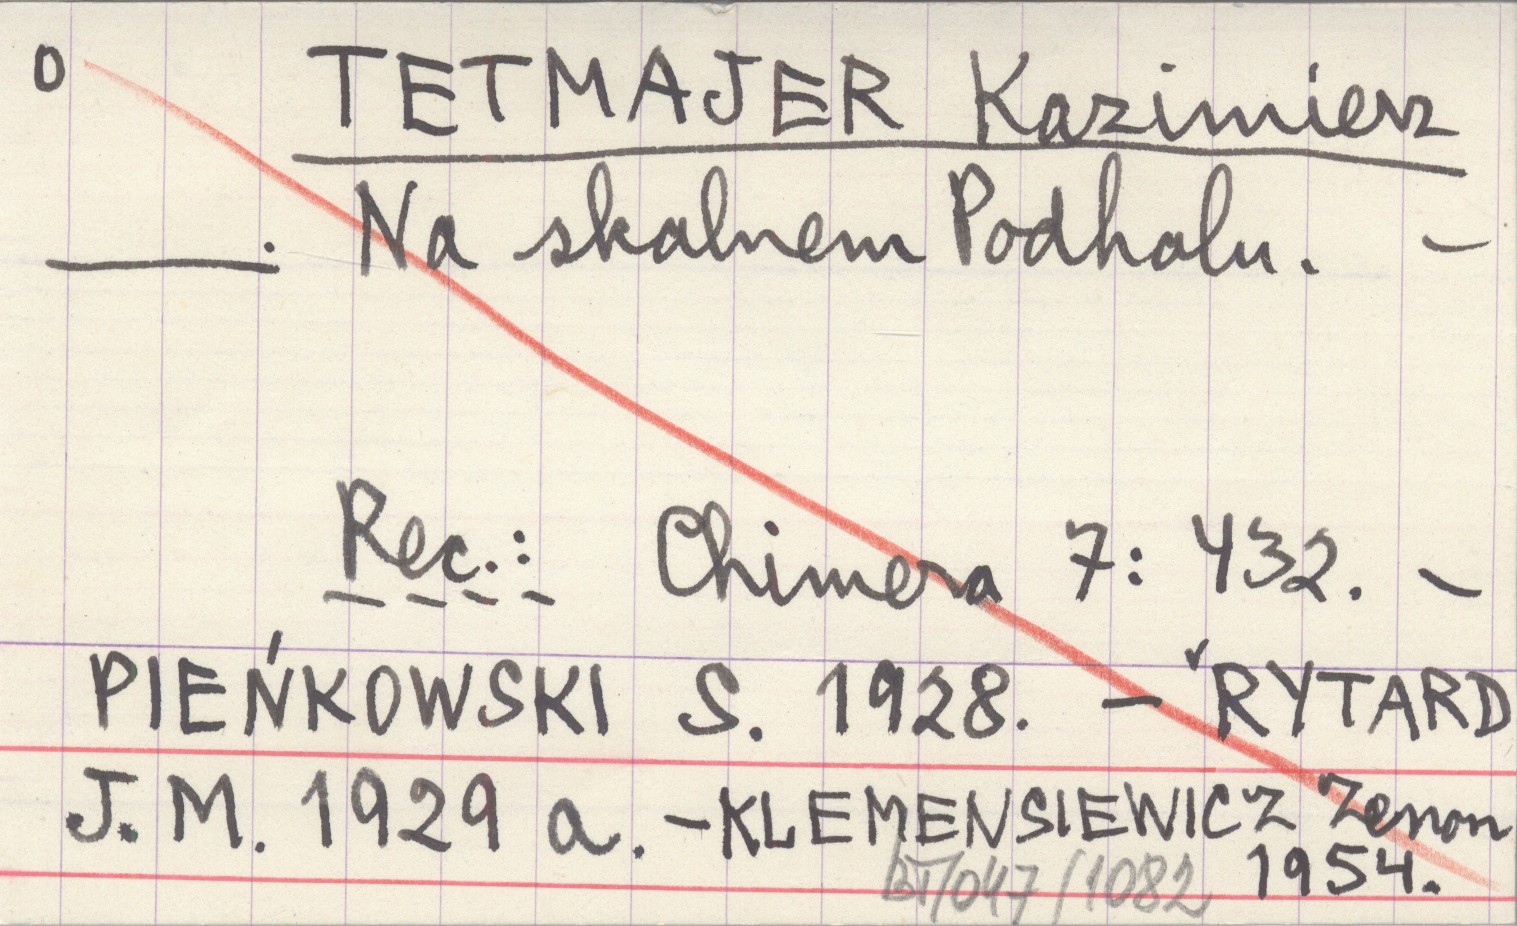 O TETMAJER Kazimierz
____. Na skalnem Podhalu. –
Rec.: Chimera 7: 432. –
PIEŃKOWSKI S. 1928. – RYTARD
J. M. 1929 a. – KLEMENSIEWICZ Zenon
1954.
BT/047/1082